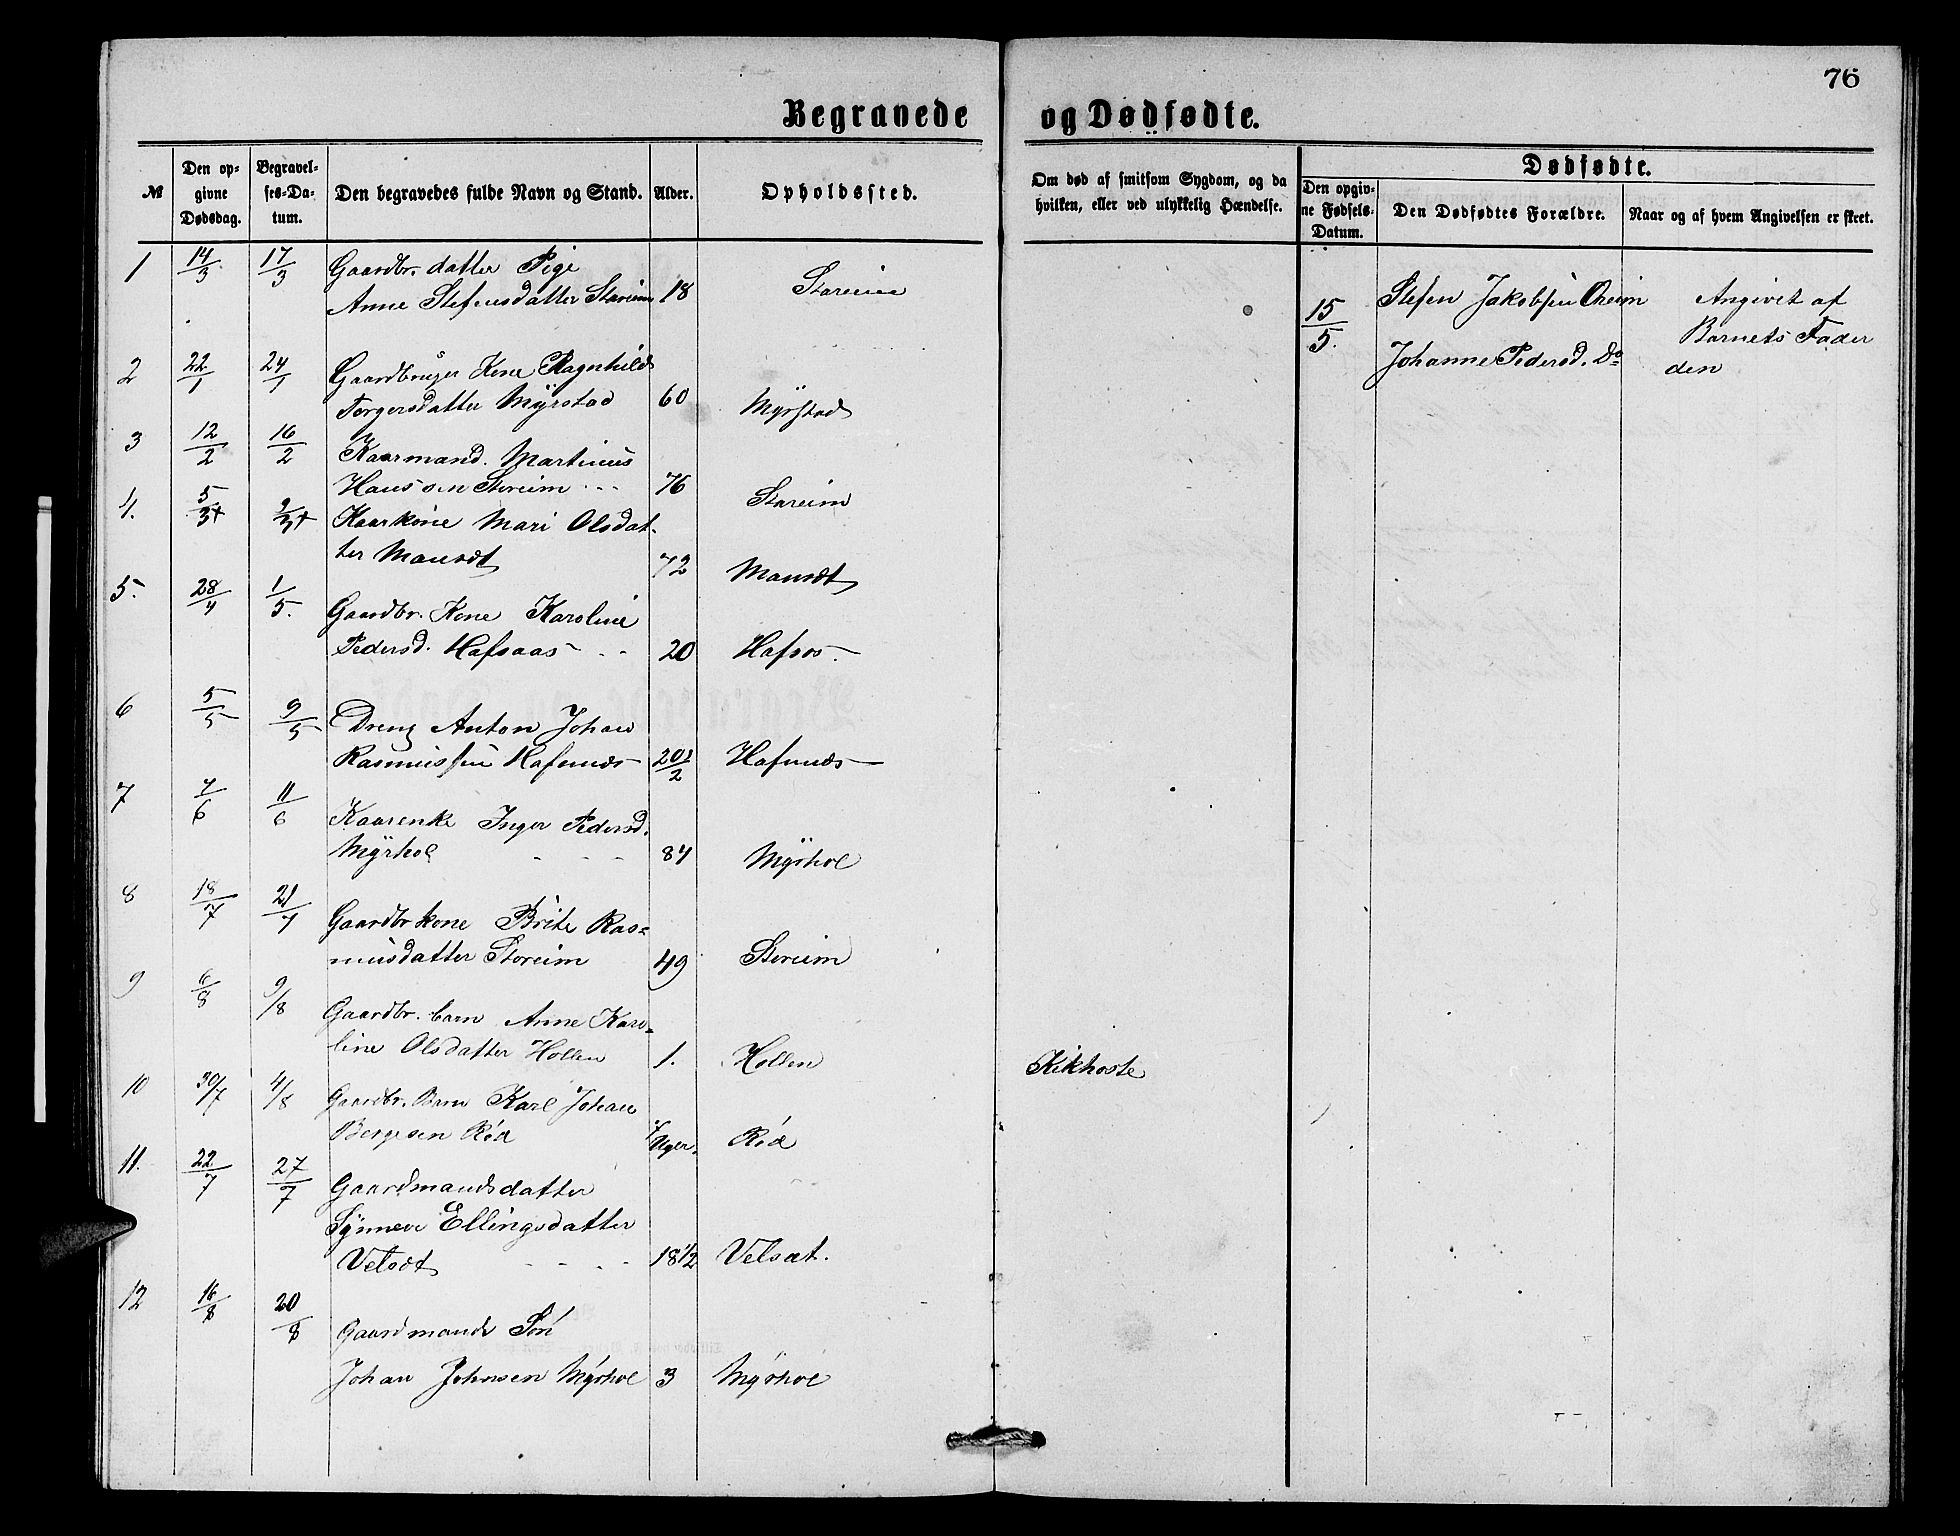 76
Begravede og Dødfødte.
№ Den opgivne Dødsdag. Begravelses-Datum. Den begravedes fulde Navn og Stand. Alder. Opholdssted. Om død af smitsom Sygdom, og da hvilken, eller ved ulykkelig Hændelse.
Dødfødte.
Den opgivne Fødsels-Datum. Den Dødfødtes Forældre. Naar og af hvem Angivelsen er skeet.
1 14/3 17/3 Gaardbr. datter Pige
Anne Stefensdatter Storeim 18 Storeim
2 22/1 24/1 Gaardbruger Kone Ragnhild
Torgersdatter Myrstad 60 Myrstad
3 12/2 16/2 Kaarmand. Martinus
Hanssen Storeim 76 Storeim
4. 5/3+ 9/3+ Kaarkone Mari Olsdat-
ter Mansæt 72 Mansæt
5. 28/4 1/5. Gaardbr. Kone Karoline
Pedersd. Hafsaas 20 Hafsos
6 5/5 9/5 Dreng Anton Johan
Rasmussen Hafsnæs 20 1/2 Hafsnæs
7 7/6 11/6 Kaarenke Inger Pedersd.
Myrhol 84 Myrhol
8 18/7 21/7 Gaardbr kone Brite Ras-
musdatter Storeim 49 Storeim
9 6/8 9/8 Gaardbr. barn Anne Karo-
line Olsdatter Hollen 1. Hollen Kikhoste
10 30/7 4/8 Gaardbr. Barn Karl Johan
Bergesen Rød Uger. Rød
11. 22/7 27/7 Gaardmandsdatter
Synneve Ellingsdatter
Velsæt 18 1/2 Velsæt.
12 16/8 20/8 Gaardmands Søn
Johan Johnsen Myrhol 3 Myrhol
15/5. Stefen Jakobsen Oreim
Johanne Pedersd. Do
Angivet af
Barnets Fader
den